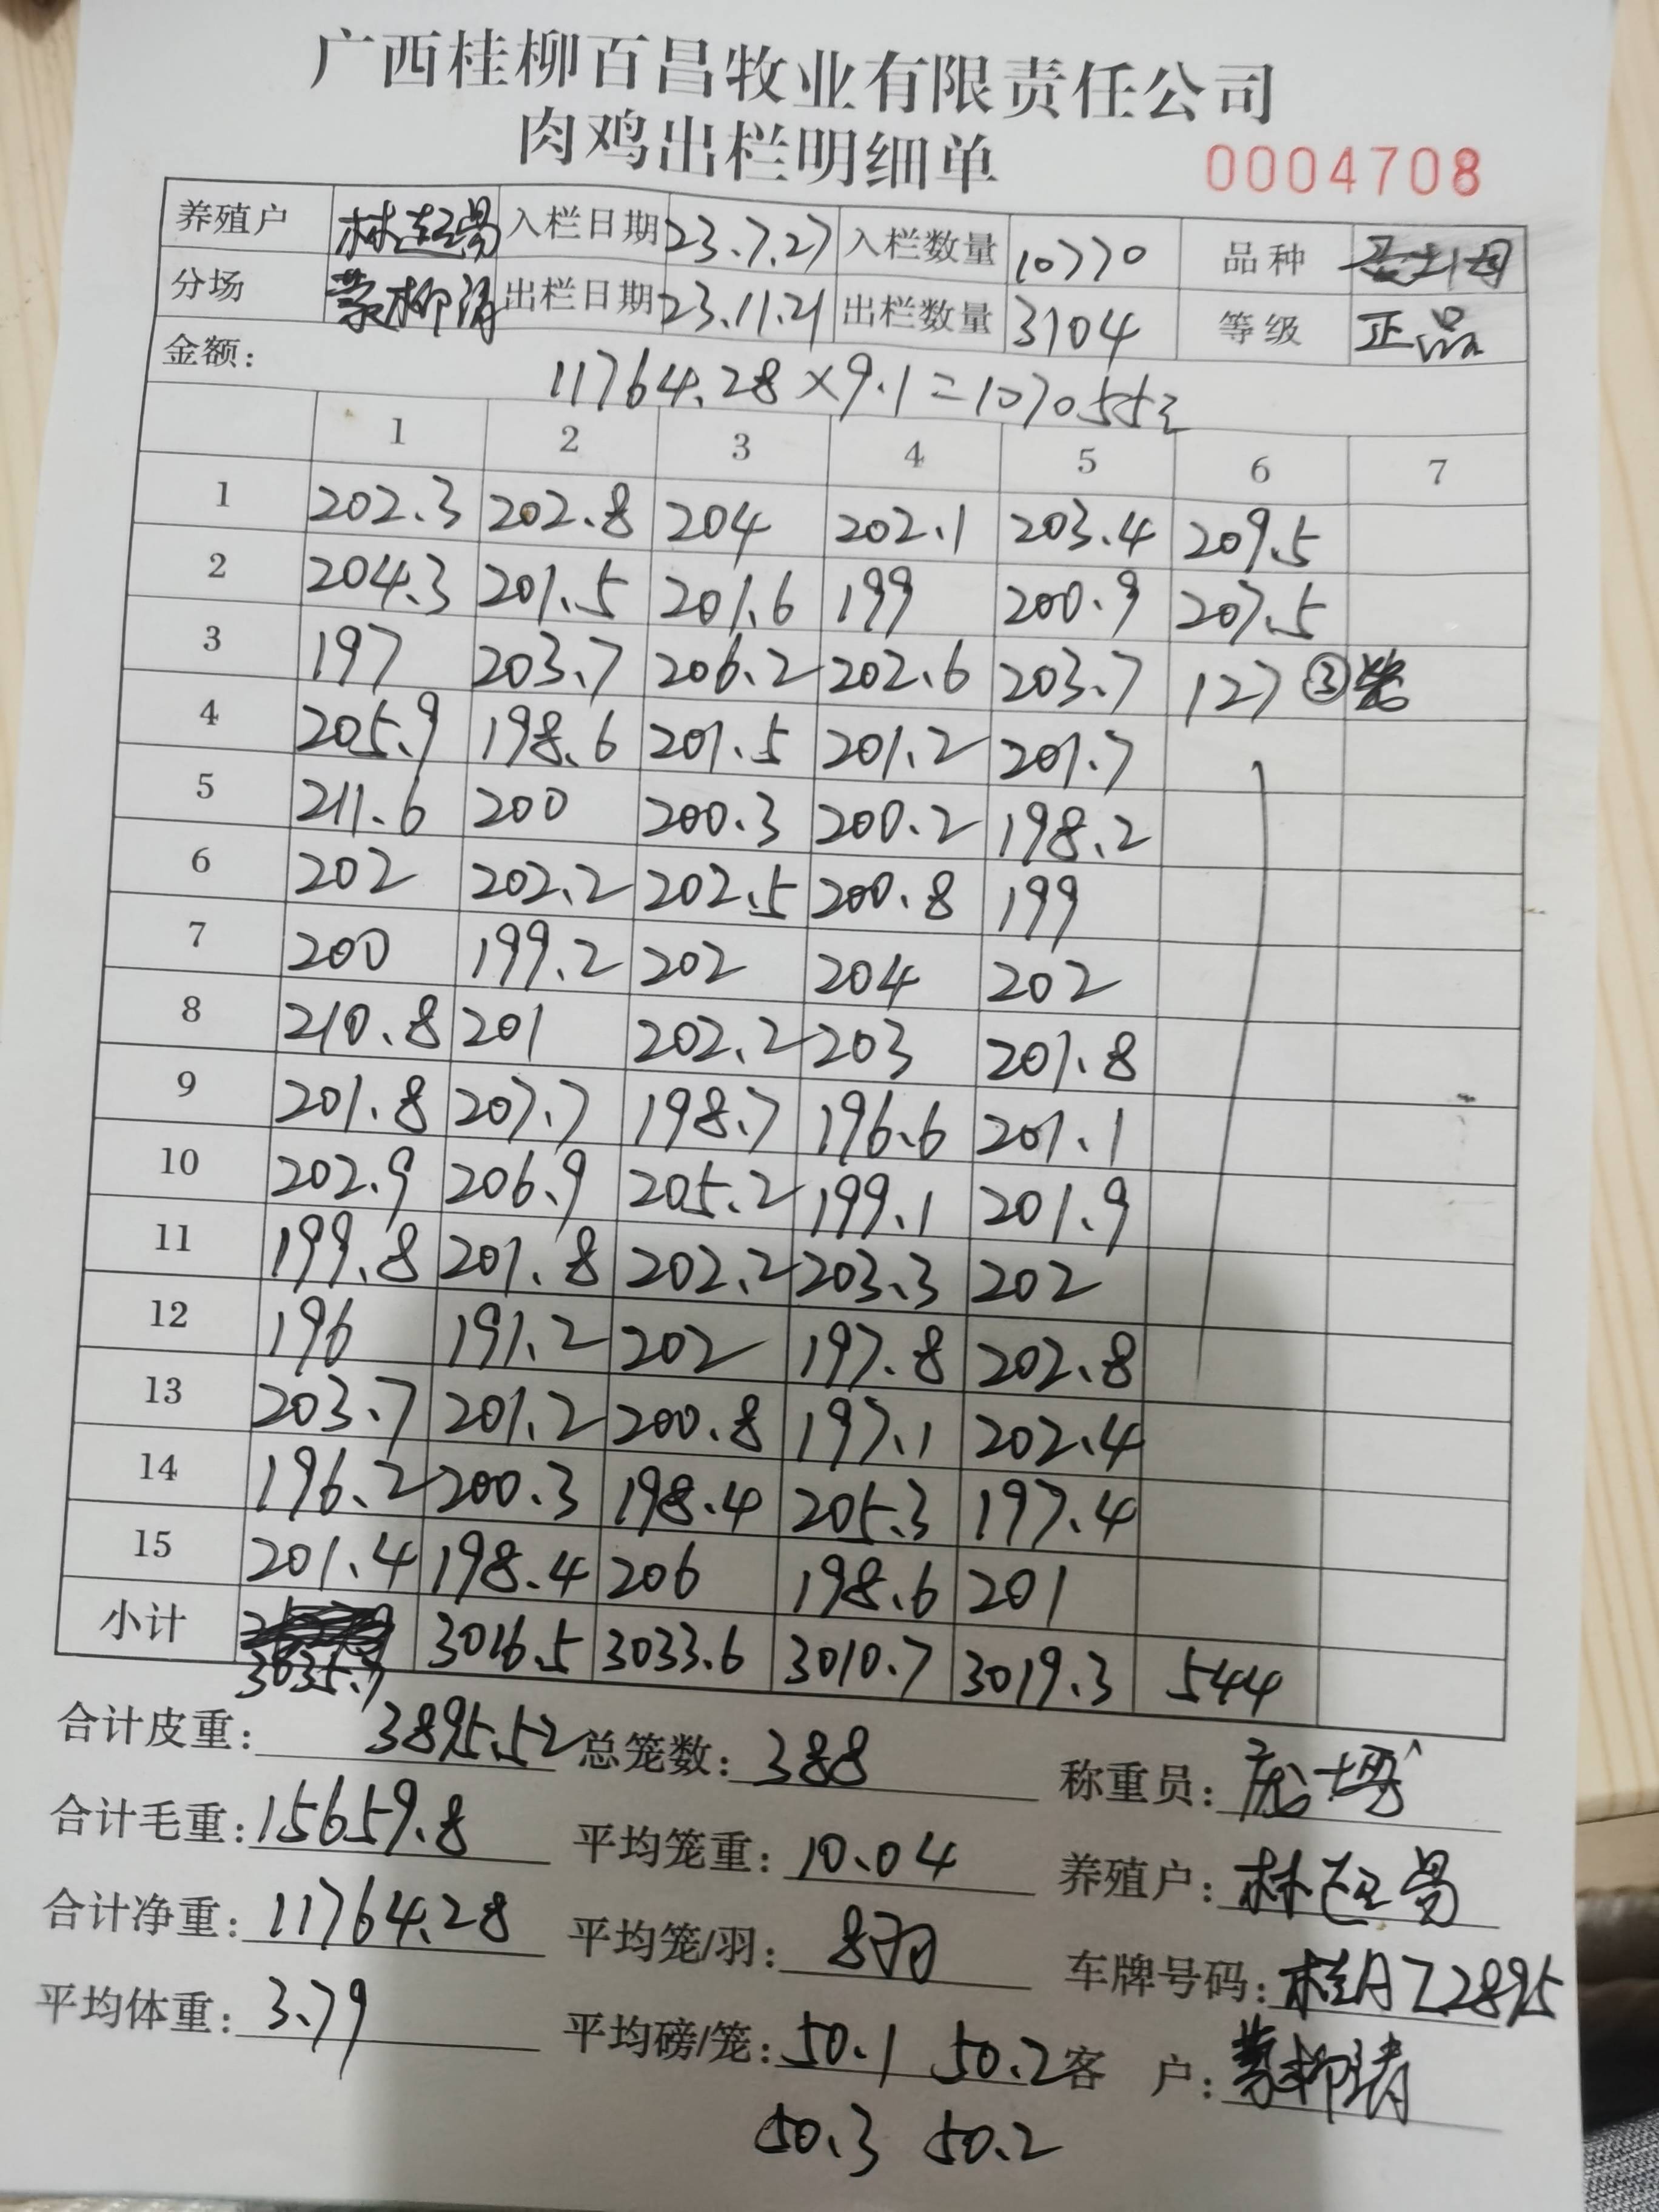 广西桂柳百昌牧业有限责任公司
肉鸡出栏明细单 0004708
养殖户 林 入栏日期 23.7.27 入栏数量 10770 品种
分场 蒙柳清 出栏日期 23.11.21 出栏数量 3104 等级 正品
金额: 11764.28×9.1=107055元
1 2 3 4 5 6 7
1 202.3 202.8 204 202.1 203.4 209.5
2 204.3 201.5 201.6 199 200.9 207.5
3 197 203.7 206.2 202.6 203.7 127 ③
4 205.9 198.6 201.5 201.2 201.7
5 211.6 200 200.3 200.2 198.2
6 202 202.2 202.5 200.8 199
7 200 199.2 202 204 202
8 210.8 201 202.2 203 201.8
9 201.8 207.7 198.7 196.6 201.1
10 202.9 206.9 205.2 199.1 201.9
11 199.8 201.8 202.2 203.3 202
12 196 191.2 202 197.8 202.8
13 203.7 201.2 200.8 197.1 202.4
14 196.2 200.3 198.4 205.3 197.4
15 201.4 198.4 206 198.6 201
小计 3035.7 3016.5 3033.6 3010.7 3019.3 544
合计皮重: 3895.52 总笼数: 388 称重员:
合计毛重: 15659.8 平均笼重: 10.04 养殖户: 林
合计净重: 11764.28 平均笼/羽: 8羽 车牌号码: 桂AZ2895
平均体重: 3.79 平均磅/笼: 50.1 50.2 客户: 蒙柳清
50.3 50.2